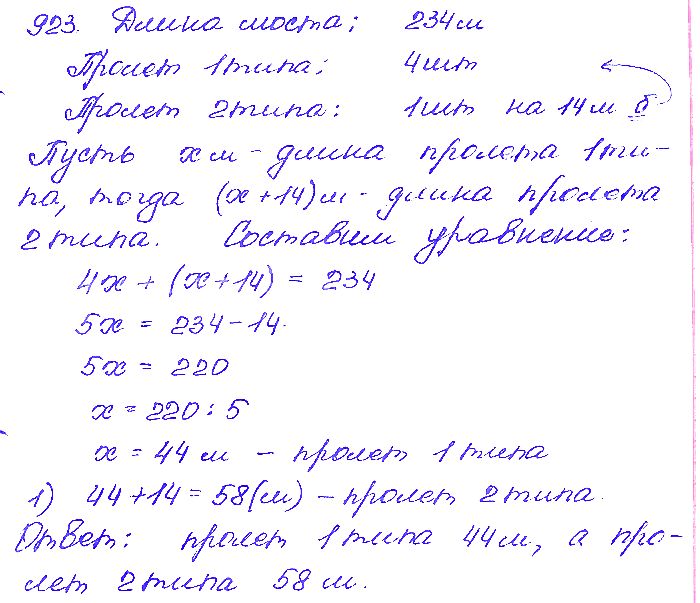 923. Длина моста: 234 м
Пролет 1 типа: 4 шт
Пролет 2 типа: 1 шт на 14 м б
Пусть х м - длина пролета 1 ти-
па, тогда (х + 14) м - длина пролета
2 типа. Составим уравнение:
4х + (х + 14) = 234
5х = 234 - 14
5х = 220
х = 220 : 5
х = 44 м - пролет 1 типа
1) 44 + 14 = 58 (м) - пролет 2 типа.
Ответ: пролет 1 типа 44 м, а про-
лет 2 типа 58 м.